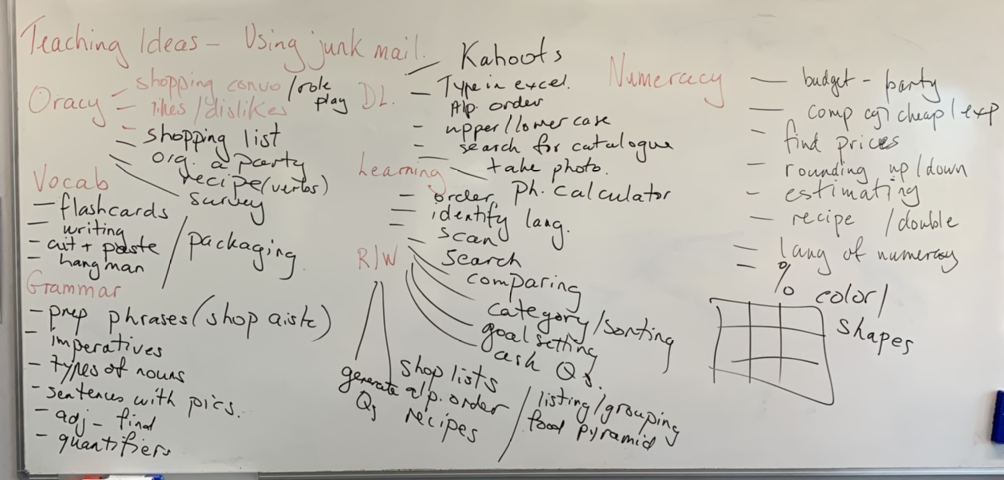 Teaching Ideas - Using junk mail.
Oracy - shopping convo/role play
- likes/dislikes
- shopping list
org. a party
recipe (verbs)
survey
Vocab
- flashcards
- writing
- cut + paste
- hangman
/ packaging
Grammar
- prep phrases (shop aisle)
- imperatives
- types of nouns
- sentences with pics.
- adj - find
- quantifiers
DL.
- Kahoots
- Type in excel.
Alp. order
- upper/lower case
- search for catalogue
- take photo.
Ph. calculator
Learning
- order,
- identify lang.
- scan
search
comparing
category/sorting
goal setting
ask Qs.
R/W
shop lists
generate Qs
alp. order
recipes
/ listing/grouping
food pyramid
Numeracy
- budget - party
- comp cat cheap/exp
- find prices
- rounding up/down
- estimating
- recipe /double
- lang of numeracy
- %
color/
shapes